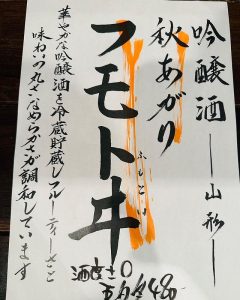 吟醸酒 ― 山形 ―
秋あがり
フモトヰ
ふもとい
華やかな吟醸酒を冷蔵貯蔵しフルーティーさと
味わいの丸さなめらかさが調和しています
酒度±0
480